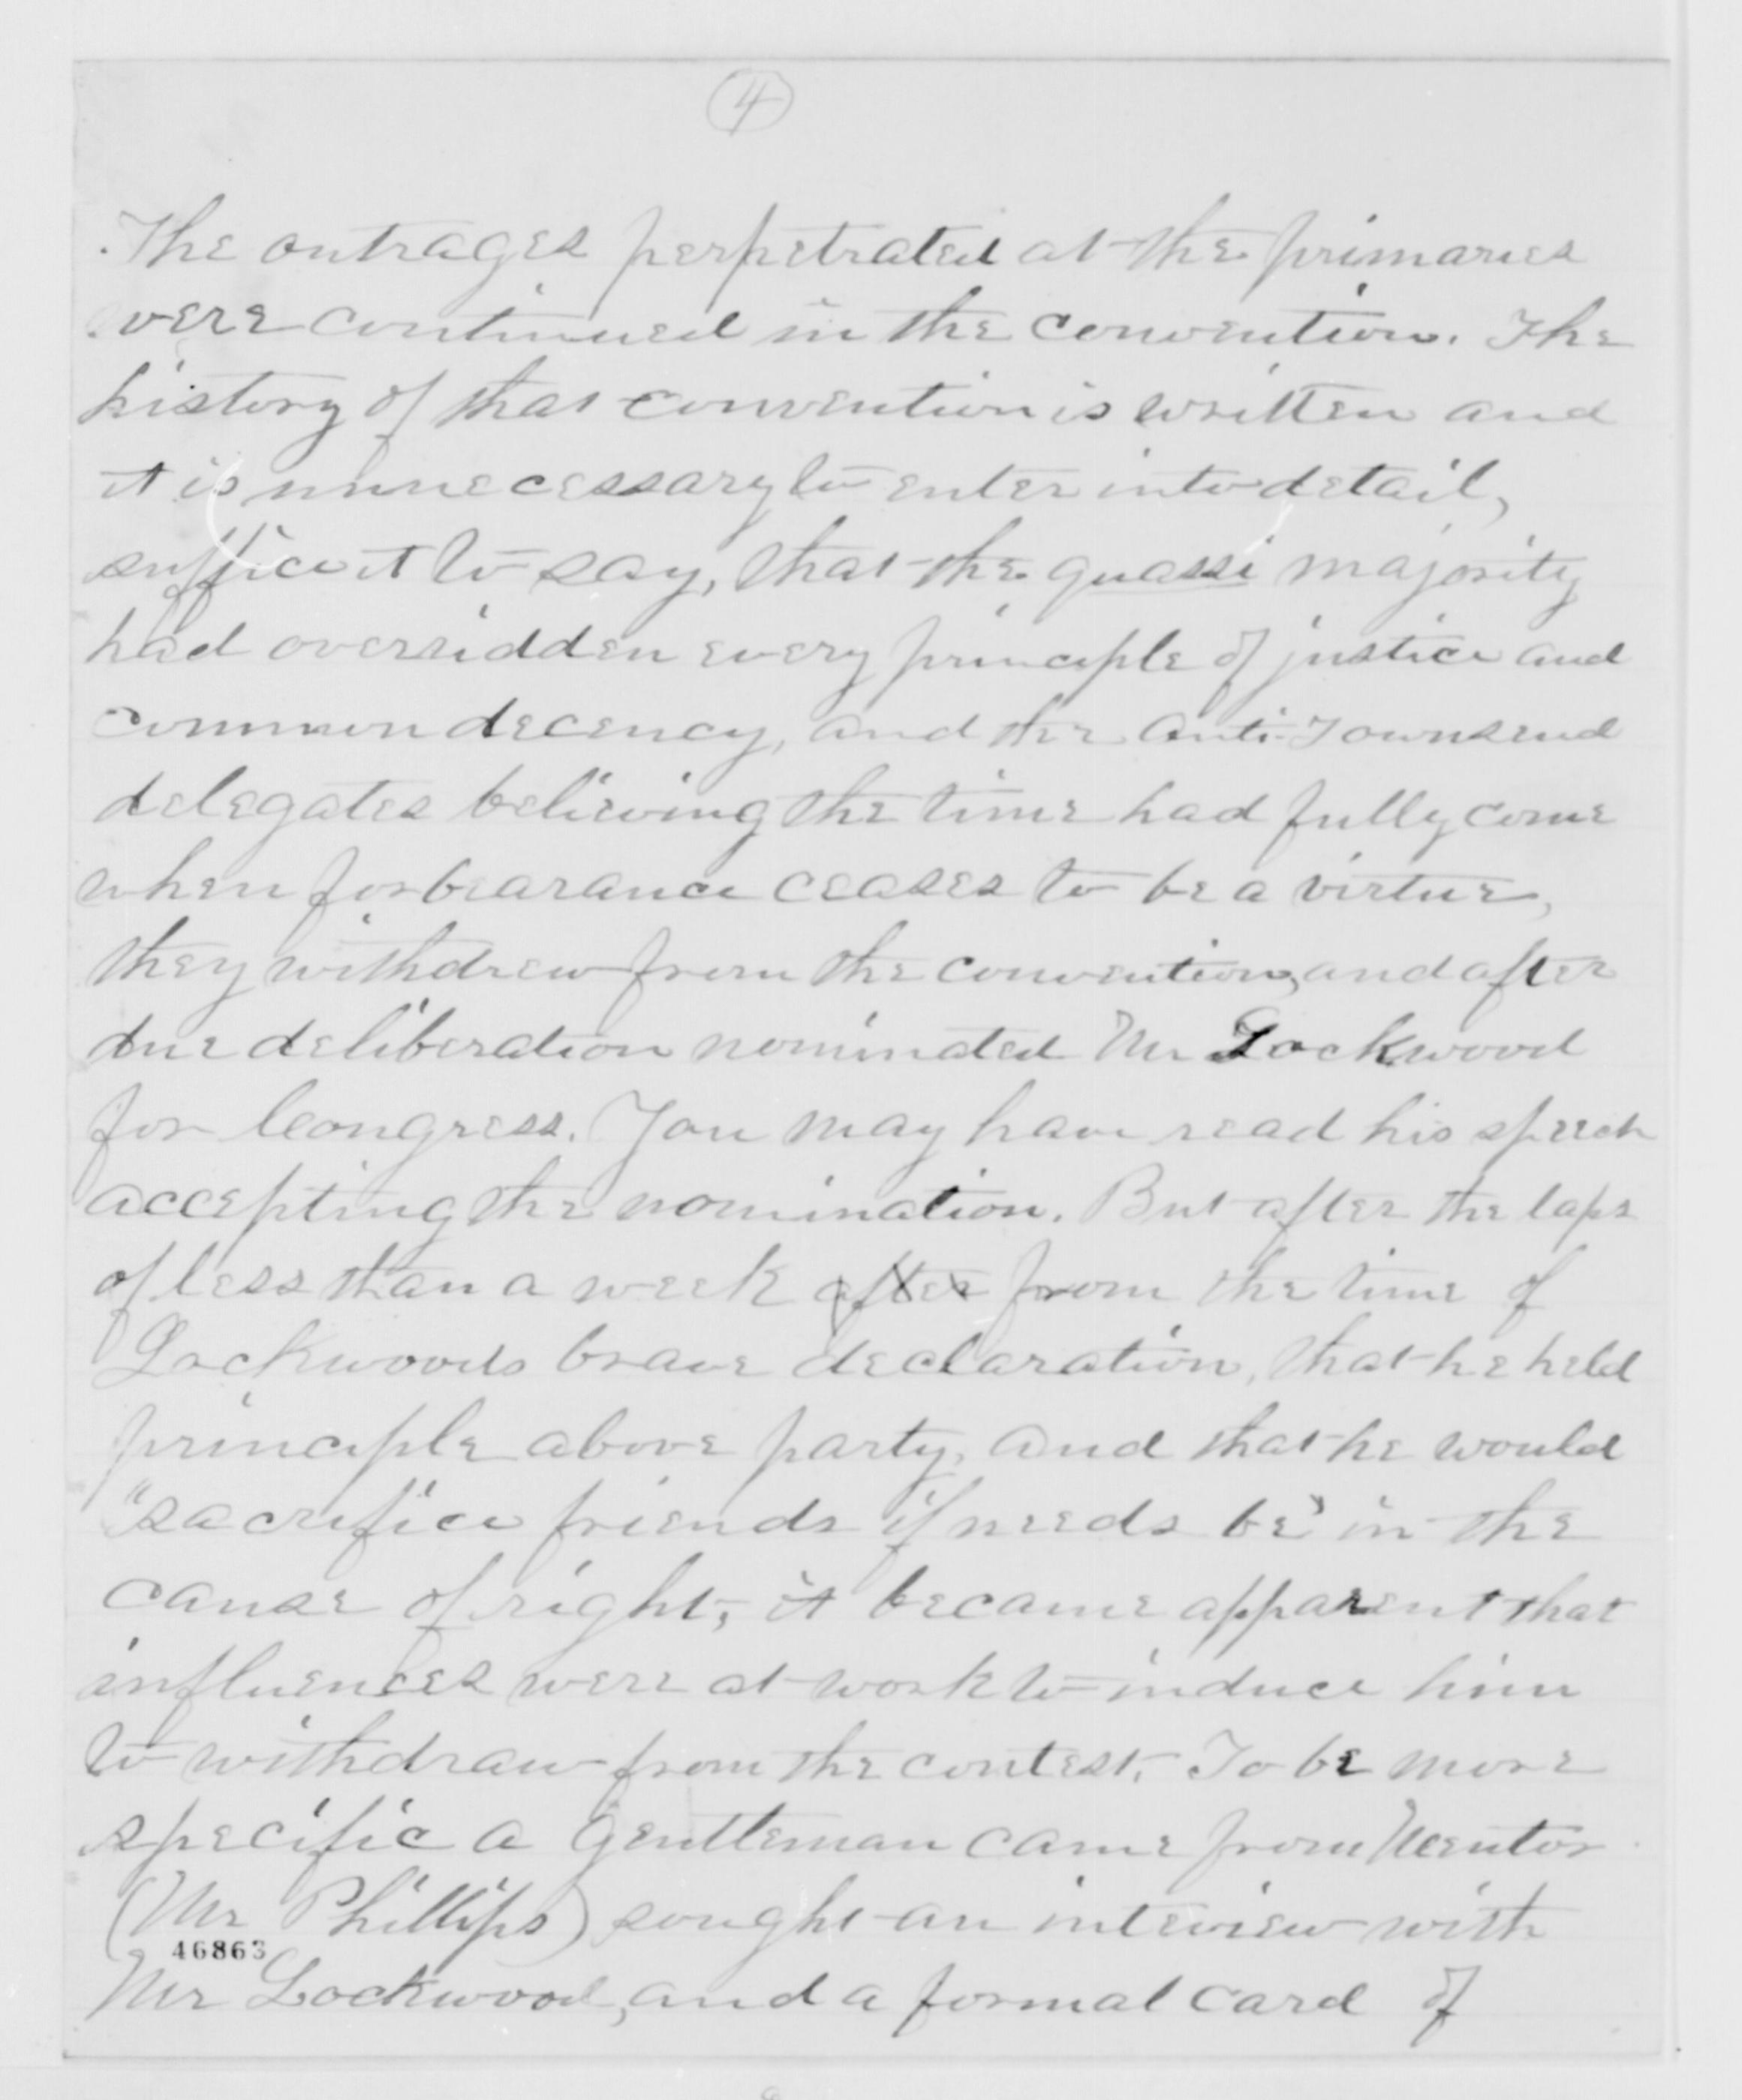 4
The outrages perpetrated at the primaries
were continued in the convention. The
history of that convention is written and
it is unnecessary to enter into detail,
suffice it to say, that the quassi majority
had overridden every principle of justice and
common decency, and the anti-Townsend
delegates believing the time had fully come
when forbearance ceases to be a virtue,
they withdrew from the convention, and after
due deliberation nominated Mr Lockwood
for Congress. You may have read his speech
accepting the nomination. But after the laps
of less than a week after from the time of
Lockwoods brave declaration, that he held
principle above party, and that he would
"sacrifice friends if needs be" in the
cause of right, it became apparent that
influences were at work to induce him
to withdraw from the contest. To be more
specific a gentleman came from Mentor
(Mr Phillips) sought an inteview with
46863
Mr Lockwood, and a formal card of